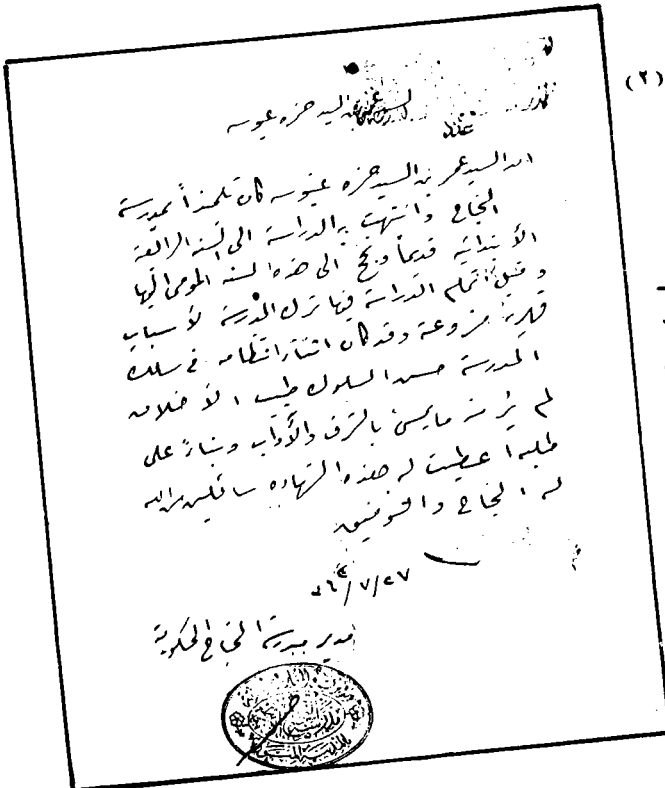 (٢)
السيد حمزه عينوسه
ان السيد عمر بن السيد حمزه عينوسه كان تلميذاً بمدرسة
النجاح وانتهت به الدراسة الى السنة الرابعة
الابتدائيه قديماً ونجح الى هذه السنه المومى اليها
وقبل اتمام الدراسة فيها ترك المدرسة لأسباب
قهرية مشروعة وقد كان اثناء انتظامه في سلك
المدرسة حسن السلوك طيب الاخلاق
لم ير منه ما يمس بالشرف والآداب وبناءً على
طلبه اعطيت له هذه الشهاده سائلين من الله
له النجاح والتوفيق
٢٧/٧/
مدير مدرسة النجاح الحكومية